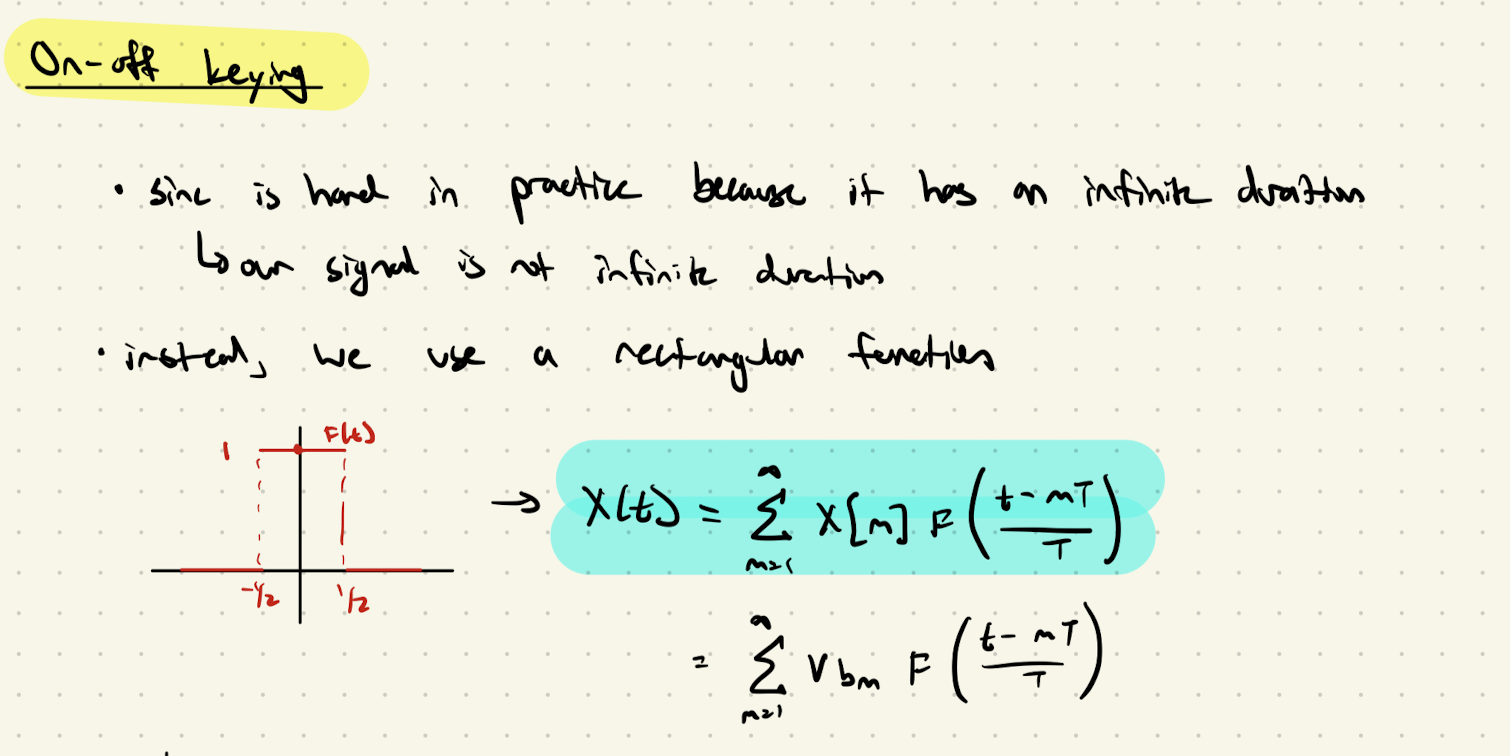 On-off keying
• sinc is hard in practice because it has an infinite duration
↳ our signal is not infinite duration
• instead, we use a rectangular function
1 F(t)
-1/2 1/2
→ X(t) = ∑_{m=1}^{n} X[m] F((t - mT)/T)
= ∑_{m=1}^{n} V b_m F((t - mT)/T)